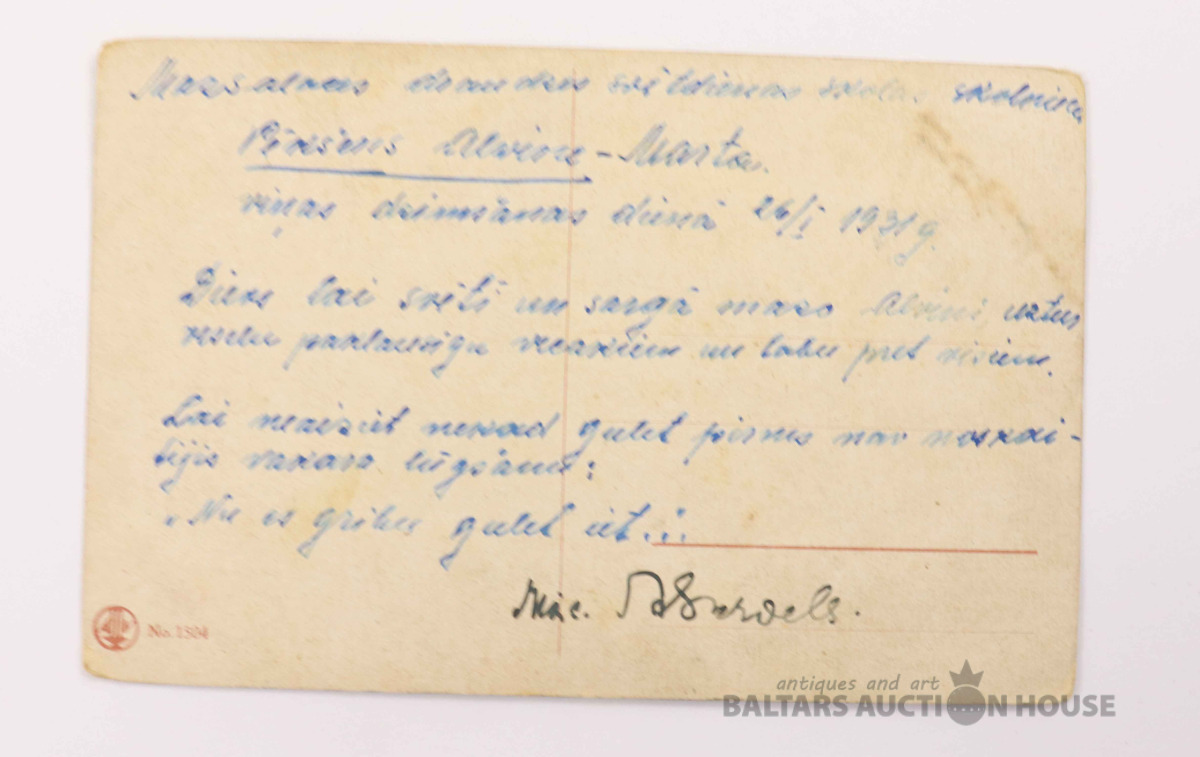 Mazsalacas draudzes svētdienas skolas skolniecei
Alvine - Marta.
viņas dzimšanas dienā 26/I 1931 g.
Dievs lai svētī un sargā mazo Alvini, uztur
veselu paklausīgu vecākiem un labu pret visiem.
Lai neaiziet nekad gulēt pirms nav noskai-
tījis vakara lūgšanu:
"Nu es gribu gulēt iet...
Māc.
No. 1304
antiques and art
BALTARS AUCTION HOUSE